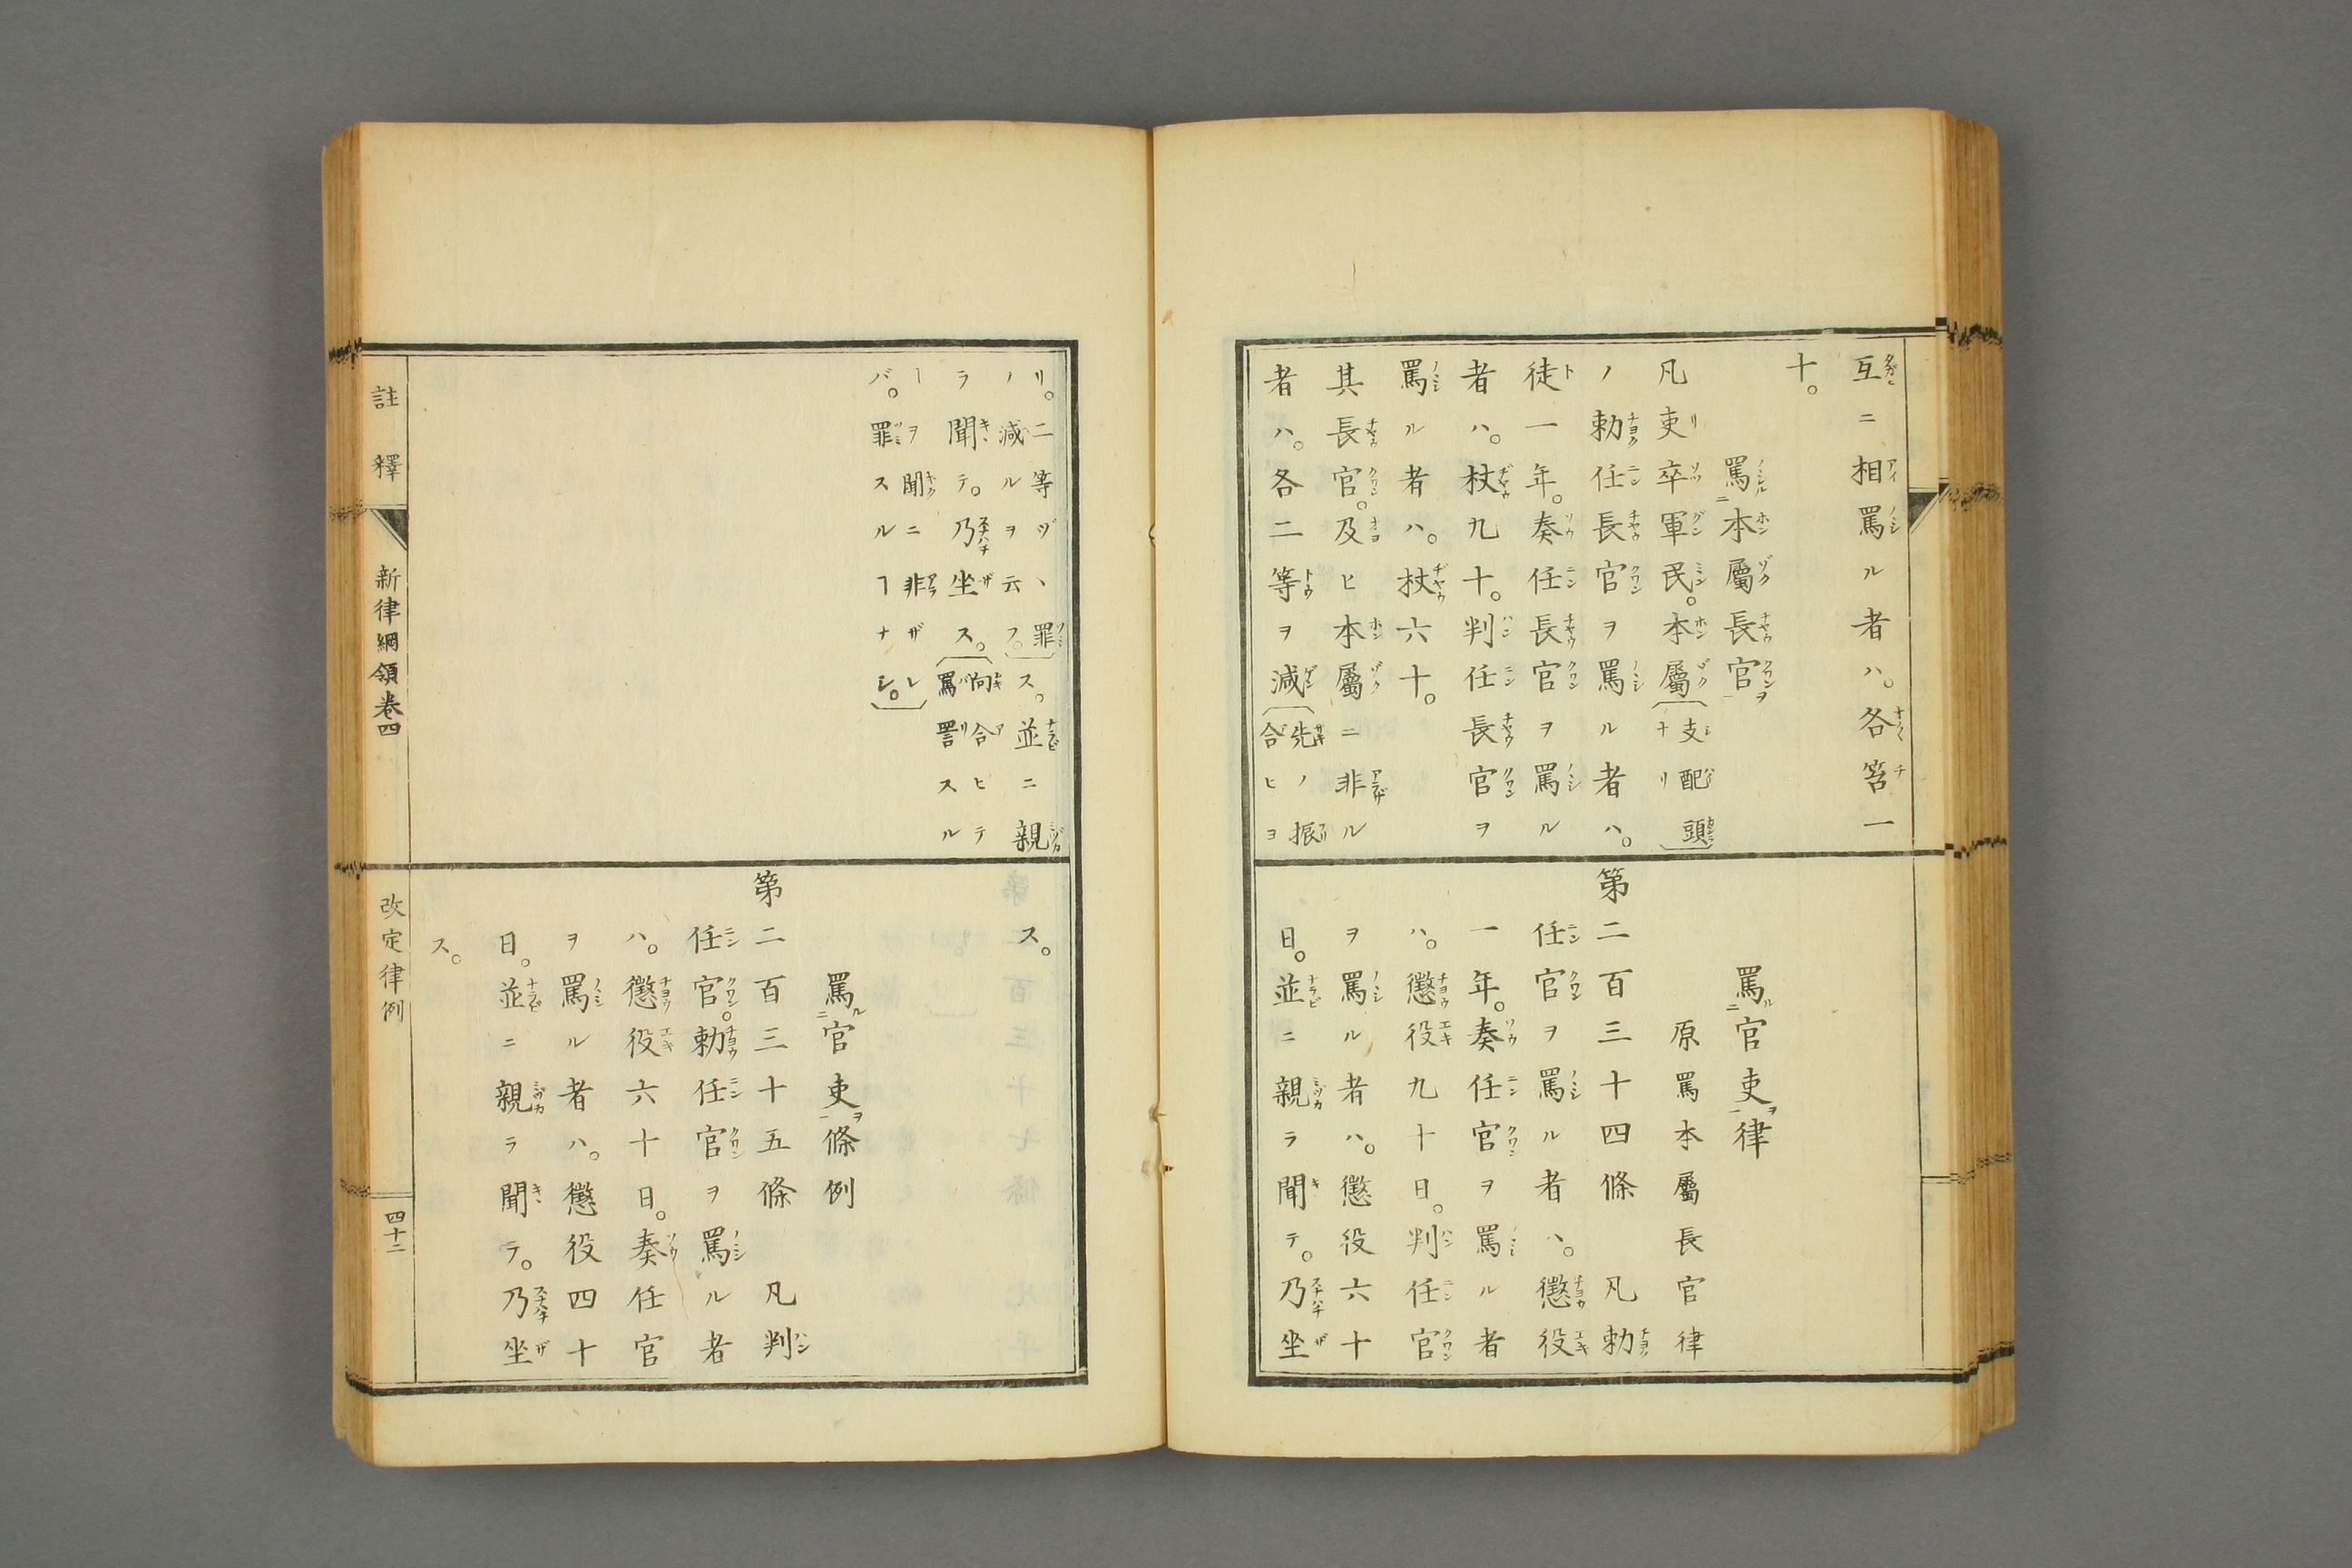 互ニ相罵ル者ハ。各笞一
十。
罵本屬長官
凡吏卒軍民。本屬〔支配頭ナリ〕
ノ勅任長官ヲ罵ル者ハ。
徒一年。奏任長官ヲ罵ル
者ハ。杖九十。判任長官ヲ
罵ル者ハ。杖六十。
其長官。及ヒ本屬ニ非ル
者ハ。各二等ヲ減〔先ノ振合ヒヨ
罵官吏律
原罵本屬長官律
第二百三十四條 凡勅
任官ヲ罵ル者ハ。懲役
一年。奏任官ヲ罵ル者
ハ。懲役九十日。判任官
ヲ罵ル者ハ。懲役六十
日。並ニ親ラ聞テ。乃坐
リ。二等ヅヽ罪ノ減ルヲ云フ。〕ス。並ニ親
ラ聞テ。乃坐ス。〔向合ヒテ罵詈スル
ヿヲ聞ニ非ザレバ。罪スルヿナシ。〕
ス。
罵官吏條例
第二百三十五條 凡判
任官。勅任官ヲ罵ル者
ハ。懲役六十日。奏任官
ヲ罵ル者ハ。懲役四十
日。並ニ親ラ聞テ。乃坐
ス。
註釋 新律綱領卷四 改定律例 四十二